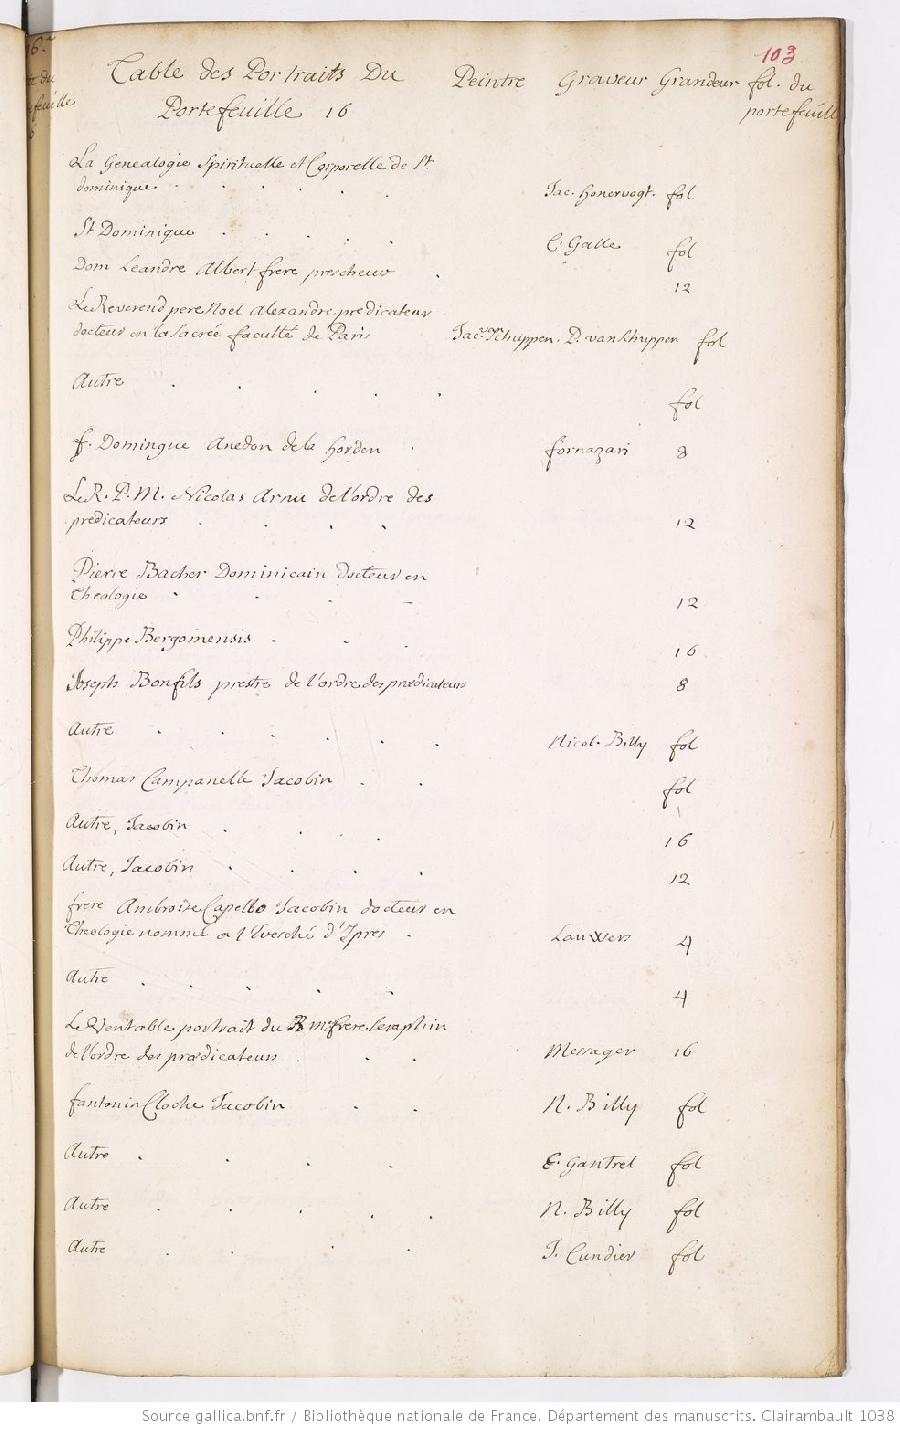 103
Table des Portraits Du Peintre Graveur Grandeur fol. du
Portefeuille 16 portefeuill
La Genealogie Spirituelle et Corporelle de St
dominique. Jac. honervogt. fol
St Dominique C. Galle fol
Dom Leandre Albert frere prescheur 12
Le Reverend pere Noel Alexandre predicateur
docteur en la sacrée faculté de Paris Jac. van Schuppen. P. van Schuppen fol
Autre fol
f. Domingue Anedon de la horden fornazari 8
Le R. P. M. Nicolas Arnu de l'ordre des
predicateurs 12
Pierre Bacher Dominicain docteur en
Theologie 12
Philippe Bergomensis 16
Joseph Bonfils prestre de l'ordre des prædicateurs 8
Autre Nicol. Billy fol
Thomas Campanelle Jacobin fol
Autre, Jacobin 16
Autre, Jacobin 12
frere Ambroise Capello Jacobin docteur en
Theologie nommé a l'Evesché d'Ypres Lauwers 4
Autre 4
Le Veritable portrait du frere Seraphin
de l'ordre des prædicateurs Messager 16
f antonin Cloche Jacobin N. Billy fol
Autre E. Gantrel fol
Autre N. Billy fol
Autre J. Cundier fol
Source gallica.bnf.fr / Bibliothèque nationale de France. Département des manuscrits. Clairambault 1038